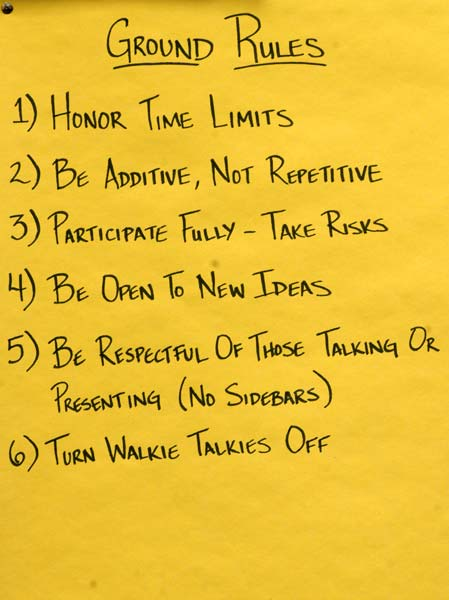 GROUND RULES
1) HONOR TIME LIMITS
2) BE ADDITIVE, NOT REPETITIVE
3) PARTICIPATE FULLY – TAKE RISKS
4) BE OPEN TO NEW IDEAS
5) BE RESPECTFUL OF THOSE TALKING OR
PRESENTING (NO SIDEBARS)
6) TURN WALKIE TALKIES OFF